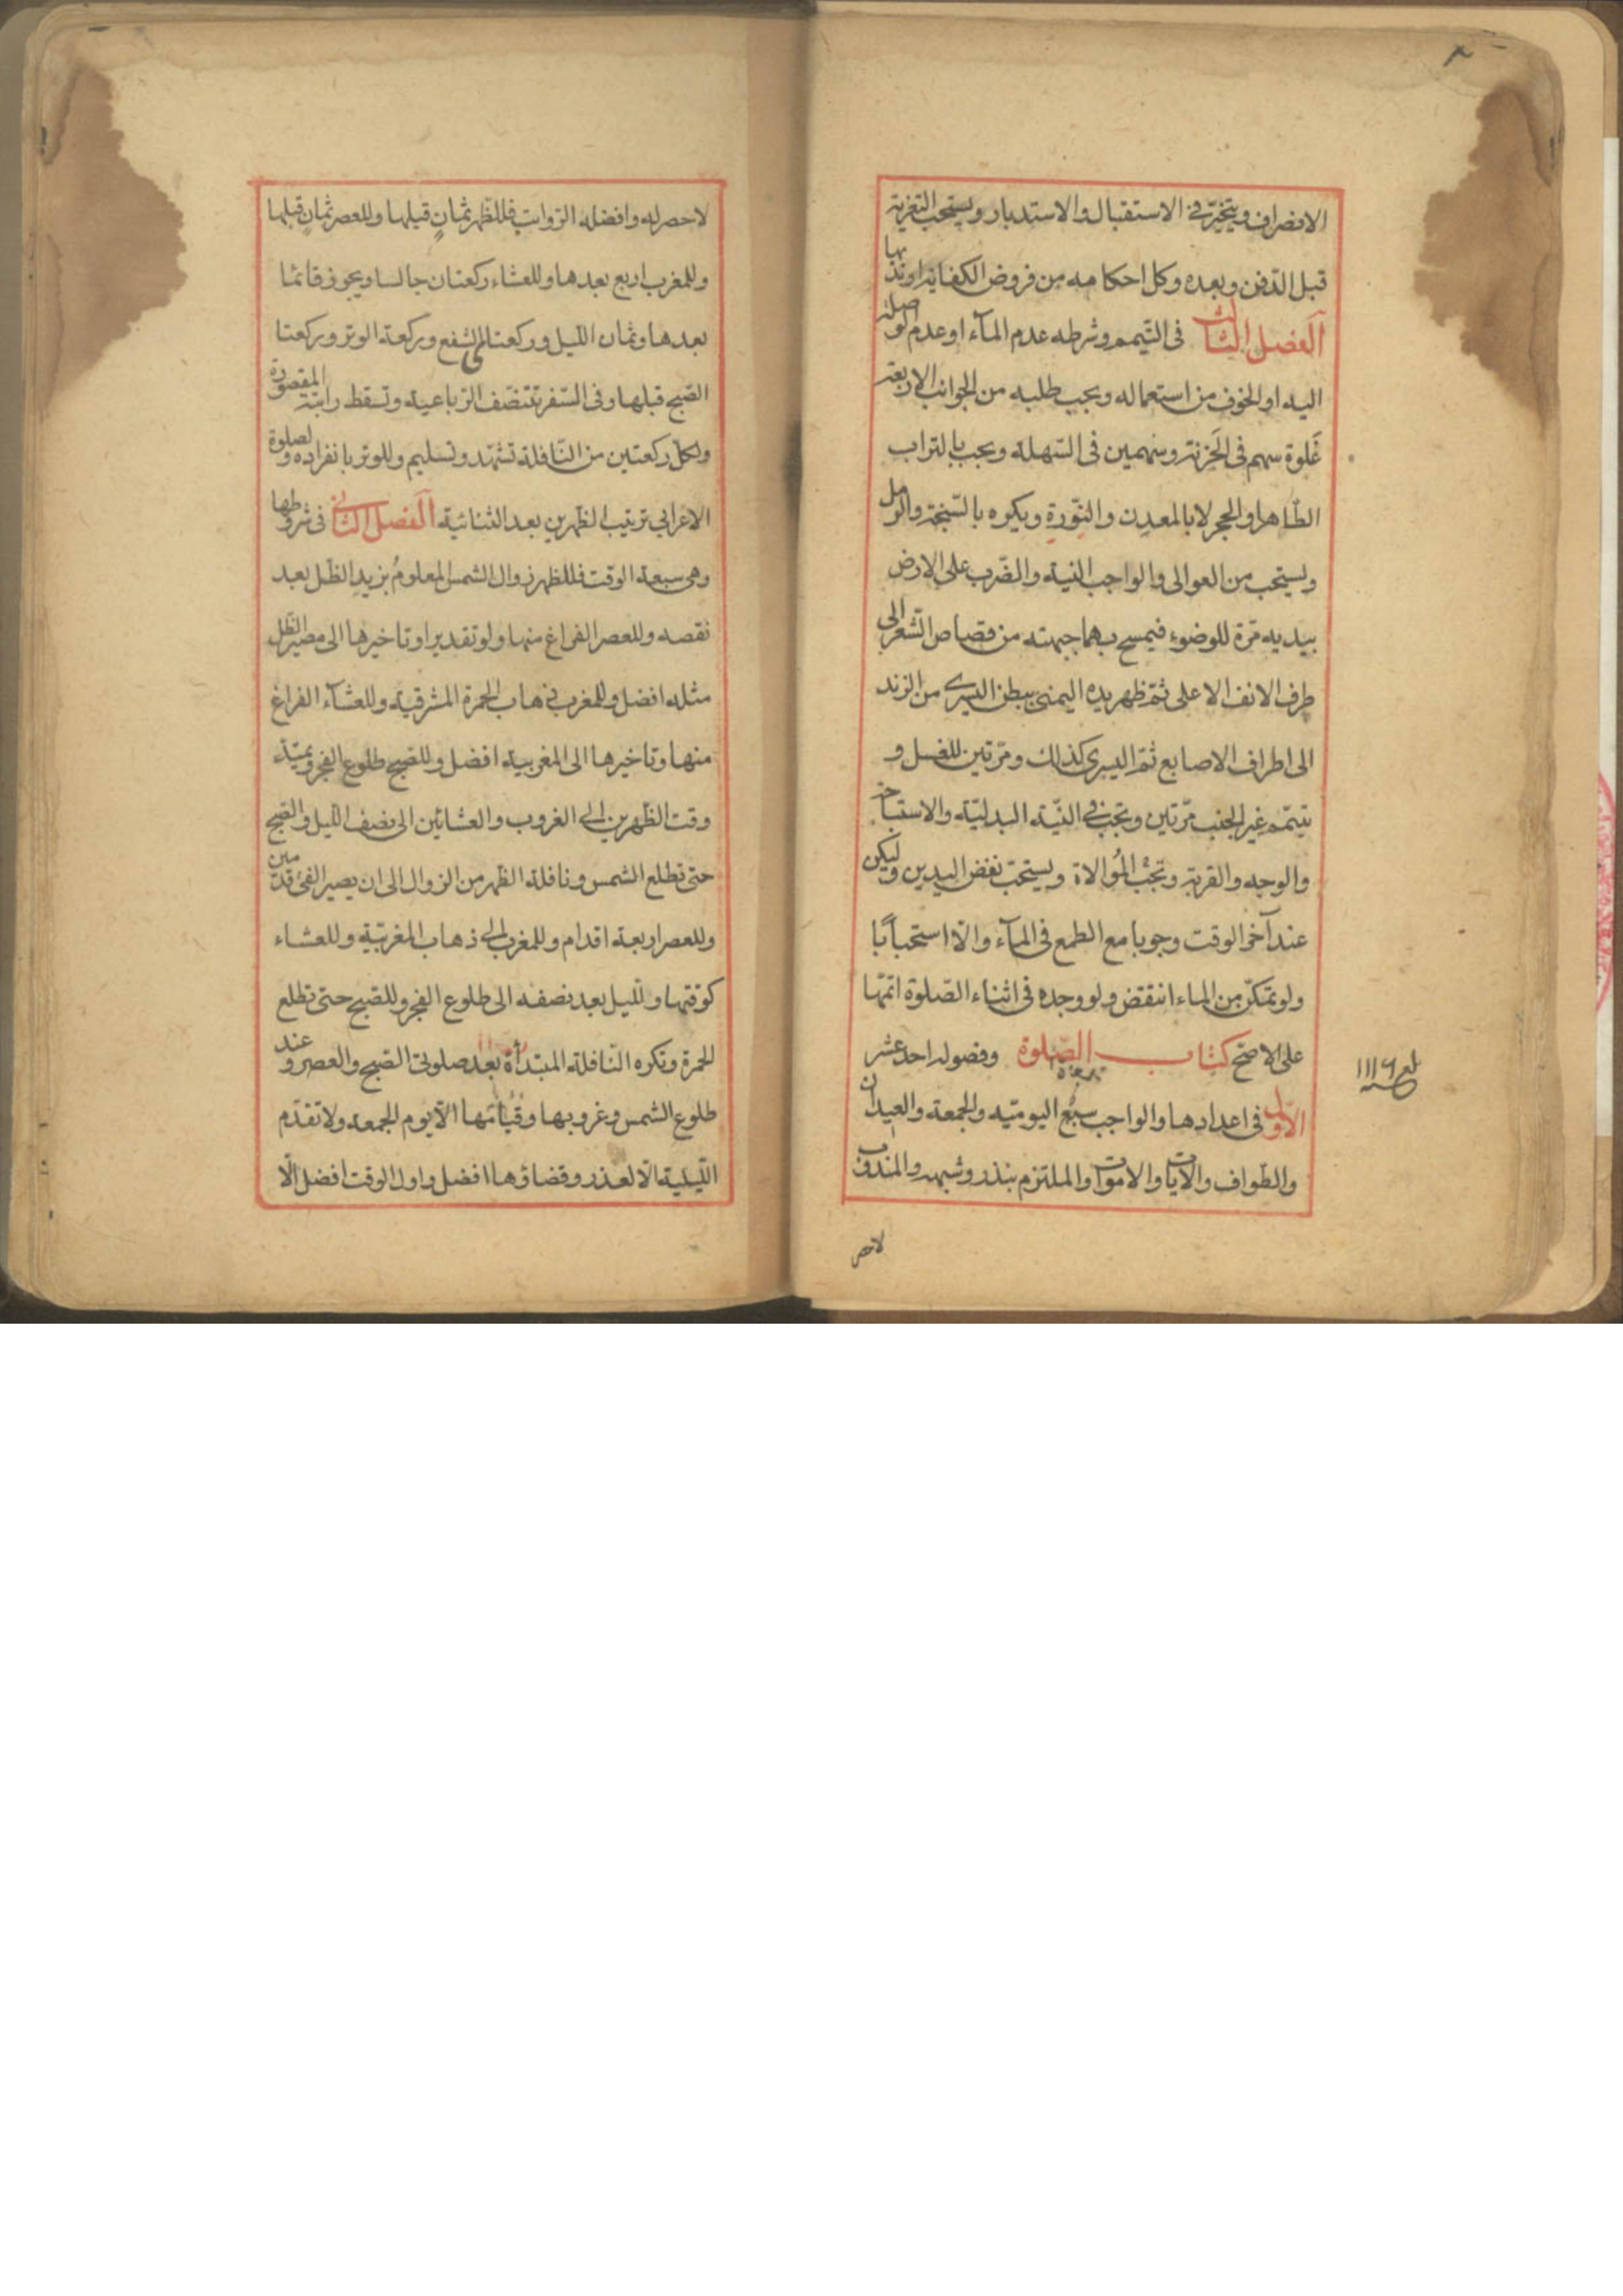 الانصراف ويتخيّر في الاستقبال والاستدبار ويستحب التعزية
قبل الدّفن وبعده وكل احكامه من فروض الكفاية او ندبها
الفصل الثالث فى التّيمم وشرطه عدم المآء او عدم الوصلة
اليه او الخوف من استعماله ويجب طلبه من الجوانب الاربعة
غَلوة سهم فى الحَزنة وسهمين فى السّهلة ويجب بالتراب
الطّاهر او الحجر لا بالمعدِن والنّورةِ ويكره بالسّبخة والرمل
ويستحب من العوالى والواجب النية والضّرب على الارض
بيديه مرّة للوضوء فيمسح بهما جبهته من قصاص الشّعر الى
طرف الانف الاعلى ثمّ ظهر يده اليمنى ببطن اليسرى من الزند
الى اطراف الاصابع ثمّ اليسرى كذلك ومرّتين للغسل و
تيمّم غير الجنب مرّتين ويجب فى النّية البدليّة والاستباحة
والوجه والقربة وتجب المُوالاة ويستحبّ نفض اليدين وليكن
عند آخر الوقت وجوبا مع الطمع فى المآء والّا استحبابًا
ولو تمكّن من الماء انتقض ولو وجده فى اثناء الصّلوة اتمّها
على الاصحّ كتاب الصّلوة وفصوله احد عشر
الاوّل فى اعدادها والواجب سبُع اليوميّة والجمعة والعيدان
والطّواف والآيات والاموات والملتزم بنذر وشبهه والمندوب
لاحصر
لاحصر له وافضله الرّواتب فللظهر ثمانٍ قبلها وللعصر ثمانٍ قبلها
وللمغرب اربع بعدها وللعشاء ركعتان جالسا ويجوز قائما
بعدها وثمان اللّيل وركعتا الشفع وركعة الوتر وركعتا
الصّبح قبلها وفى السّفر تتنصّف الرّباعية وتسقط راتبة المقصورة
ولكلّ ركعتين من النّافلة تشهّد وتسليم وللوتر بانفراده ولصلوة
الاعرابي ترتيب الظهرين بعد الثنائية الفصل الثانى فى شروطها
وهى سبعة الوقت فللظهر زوال الشمس المعلومُ بزيد الظل بعد
نقصه وللعصر الفراغ منها ولو تقديرا وتاخيرها الى مصير الظل
مثله افضل وللمغرب ذهاب الحمرة المشرقية وللعشاء الفراغ
منها وتاخيرها الى المغربية افضل وللصبح طلوع الفجر ويمتدّ
وقت الظّهرين الى الغروب والعشائين الى نصف الليل والصّبح
حتى تطلع الشمس ونافلة الظهر من الزوال الى ان يصير الفئ قدمين
وللعصر اربعة اقدام وللمغرب الى ذهاب المغربيّة وللعشاء
كوقتها ولليل بعد نصفه الى طلوع الفجر وللصّبح حتى تطلع
الحمرة وتكره النّافلة المبتدأة بعد صلوتى الصّبح والعصر وعند
طلوع الشمس وغروبها وقيامها الّا يوم الجمعه ولا تقدّم
اللّيلية الّا لعذر وقضاؤها افضل واول الوقت افضل الّا